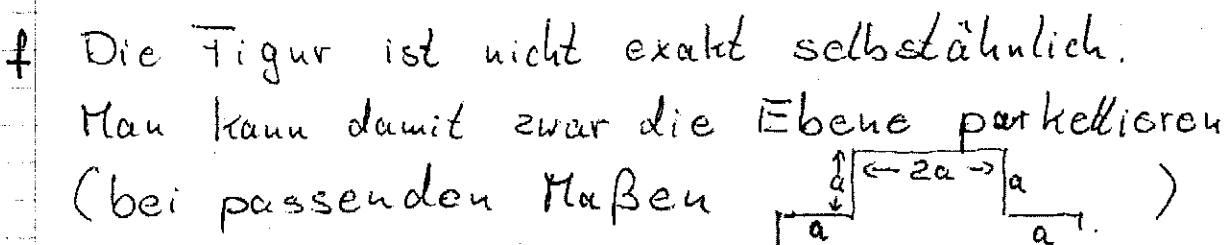 f Die Figur ist nicht exakt selbstähnlich.
Man kann damit zwar die Ebene parkettieren
(bei passenden Maßen a a ← 2a → a a. )